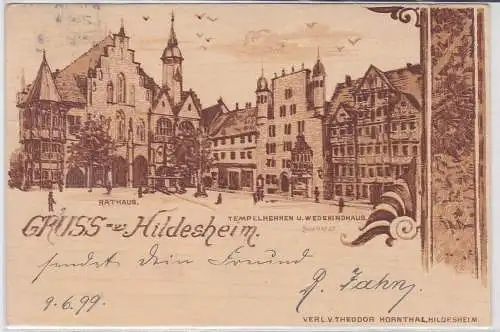 RATHAUS.
TEMPELHERREN U. WEDEKINDHAUS.
GRUSS a. Hildesheim.
sendet Dein Freund
R. Jahn
9.6.99.
VERL.V.THEODOR HORNTHAL, HILDESHEIM.